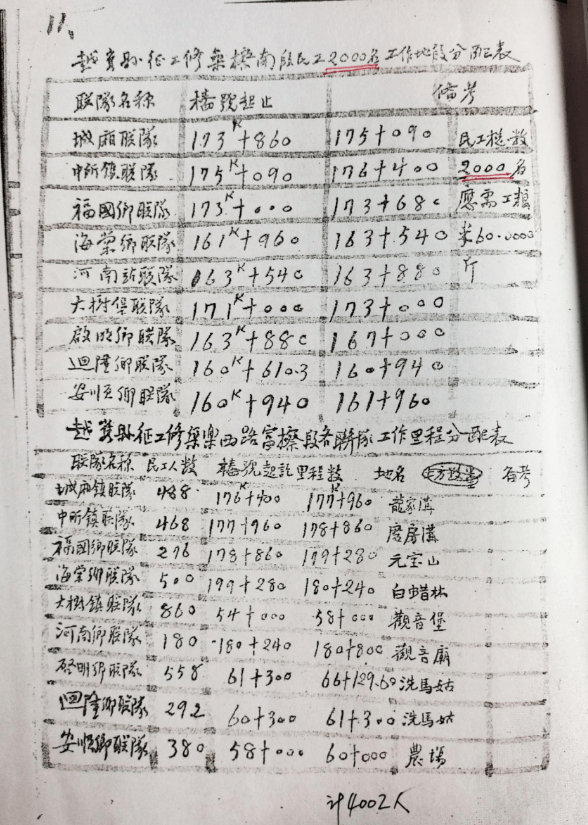 11
越嶲縣征工修築擦南段民工2000名工作地段分配表
联隊名称 樁號起止 備考
城廂联隊 173K+860 175+090 民工総数
中所鎮联隊 175K+090 176+400 2000名
福國鄉联隊 173K+000 173+680 應需工糧
海棠鄉联隊 161K+960 163+540 米60.0000
河南站联隊 163K+540 163+880 斤
大樹堡联隊 171K+000 173+000
啟明鄉联隊 163K+880 167+000
迴隆鄉联隊 160K+610.3 160+940
安順鄉联隊 160K+940 161+960
越嶲縣征工修築樂西路富擦段各聯隊工作里程分配表
联隊名称 民工人数 樁號起訖里程数 地名 备考
城廂鎮联隊 488 176+400 177K+960 龍家溝
中所鎮联隊 468 177+960 178+860 磨房溝
福國鄉联隊 276 178+860 179+280 元宝山
海棠鄉联隊 500 179+280 180+240 白蜡林
大樹鎮联隊 860 54+000 58+000 觀音堡
河南鄉联隊 180 180+240 180+800 觀音廟
啓明鄉联隊 558 61+300 66+129.60 洗馬姑
迴隆鄉联隊 292 60+300 61+300 洗馬姑
安順鄉联隊 380 58+000 60+000 農場
計4002人